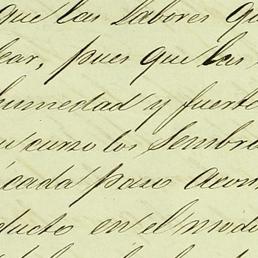 que las labores qu
lear, pues que las
humedad y fuerte
su curso los sembra
cada paso acom
ducto en el modo